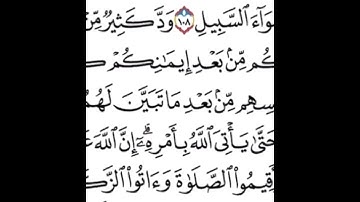 وَآءَ ٱلسَّبِيلِ ١٠٨ وَدَّ كَثِيرٌ مِّنْ
كُم مِّنۢ بَعْدِ إِيمَٰنِكُمْ كُ
سِهِم مِّنۢ بَعْدِ مَا تَبَيَّنَ لَهُمُ
حَتَّىٰ يَأْتِىَ ٱللَّهُ بِأَمْرِهِۦٓ ۗ إِنَّ ٱللَّهَ عَ
أَقِيمُوا۟ ٱلصَّلَوٰةَ وَءَاتُوا۟ ٱلزَّكَ